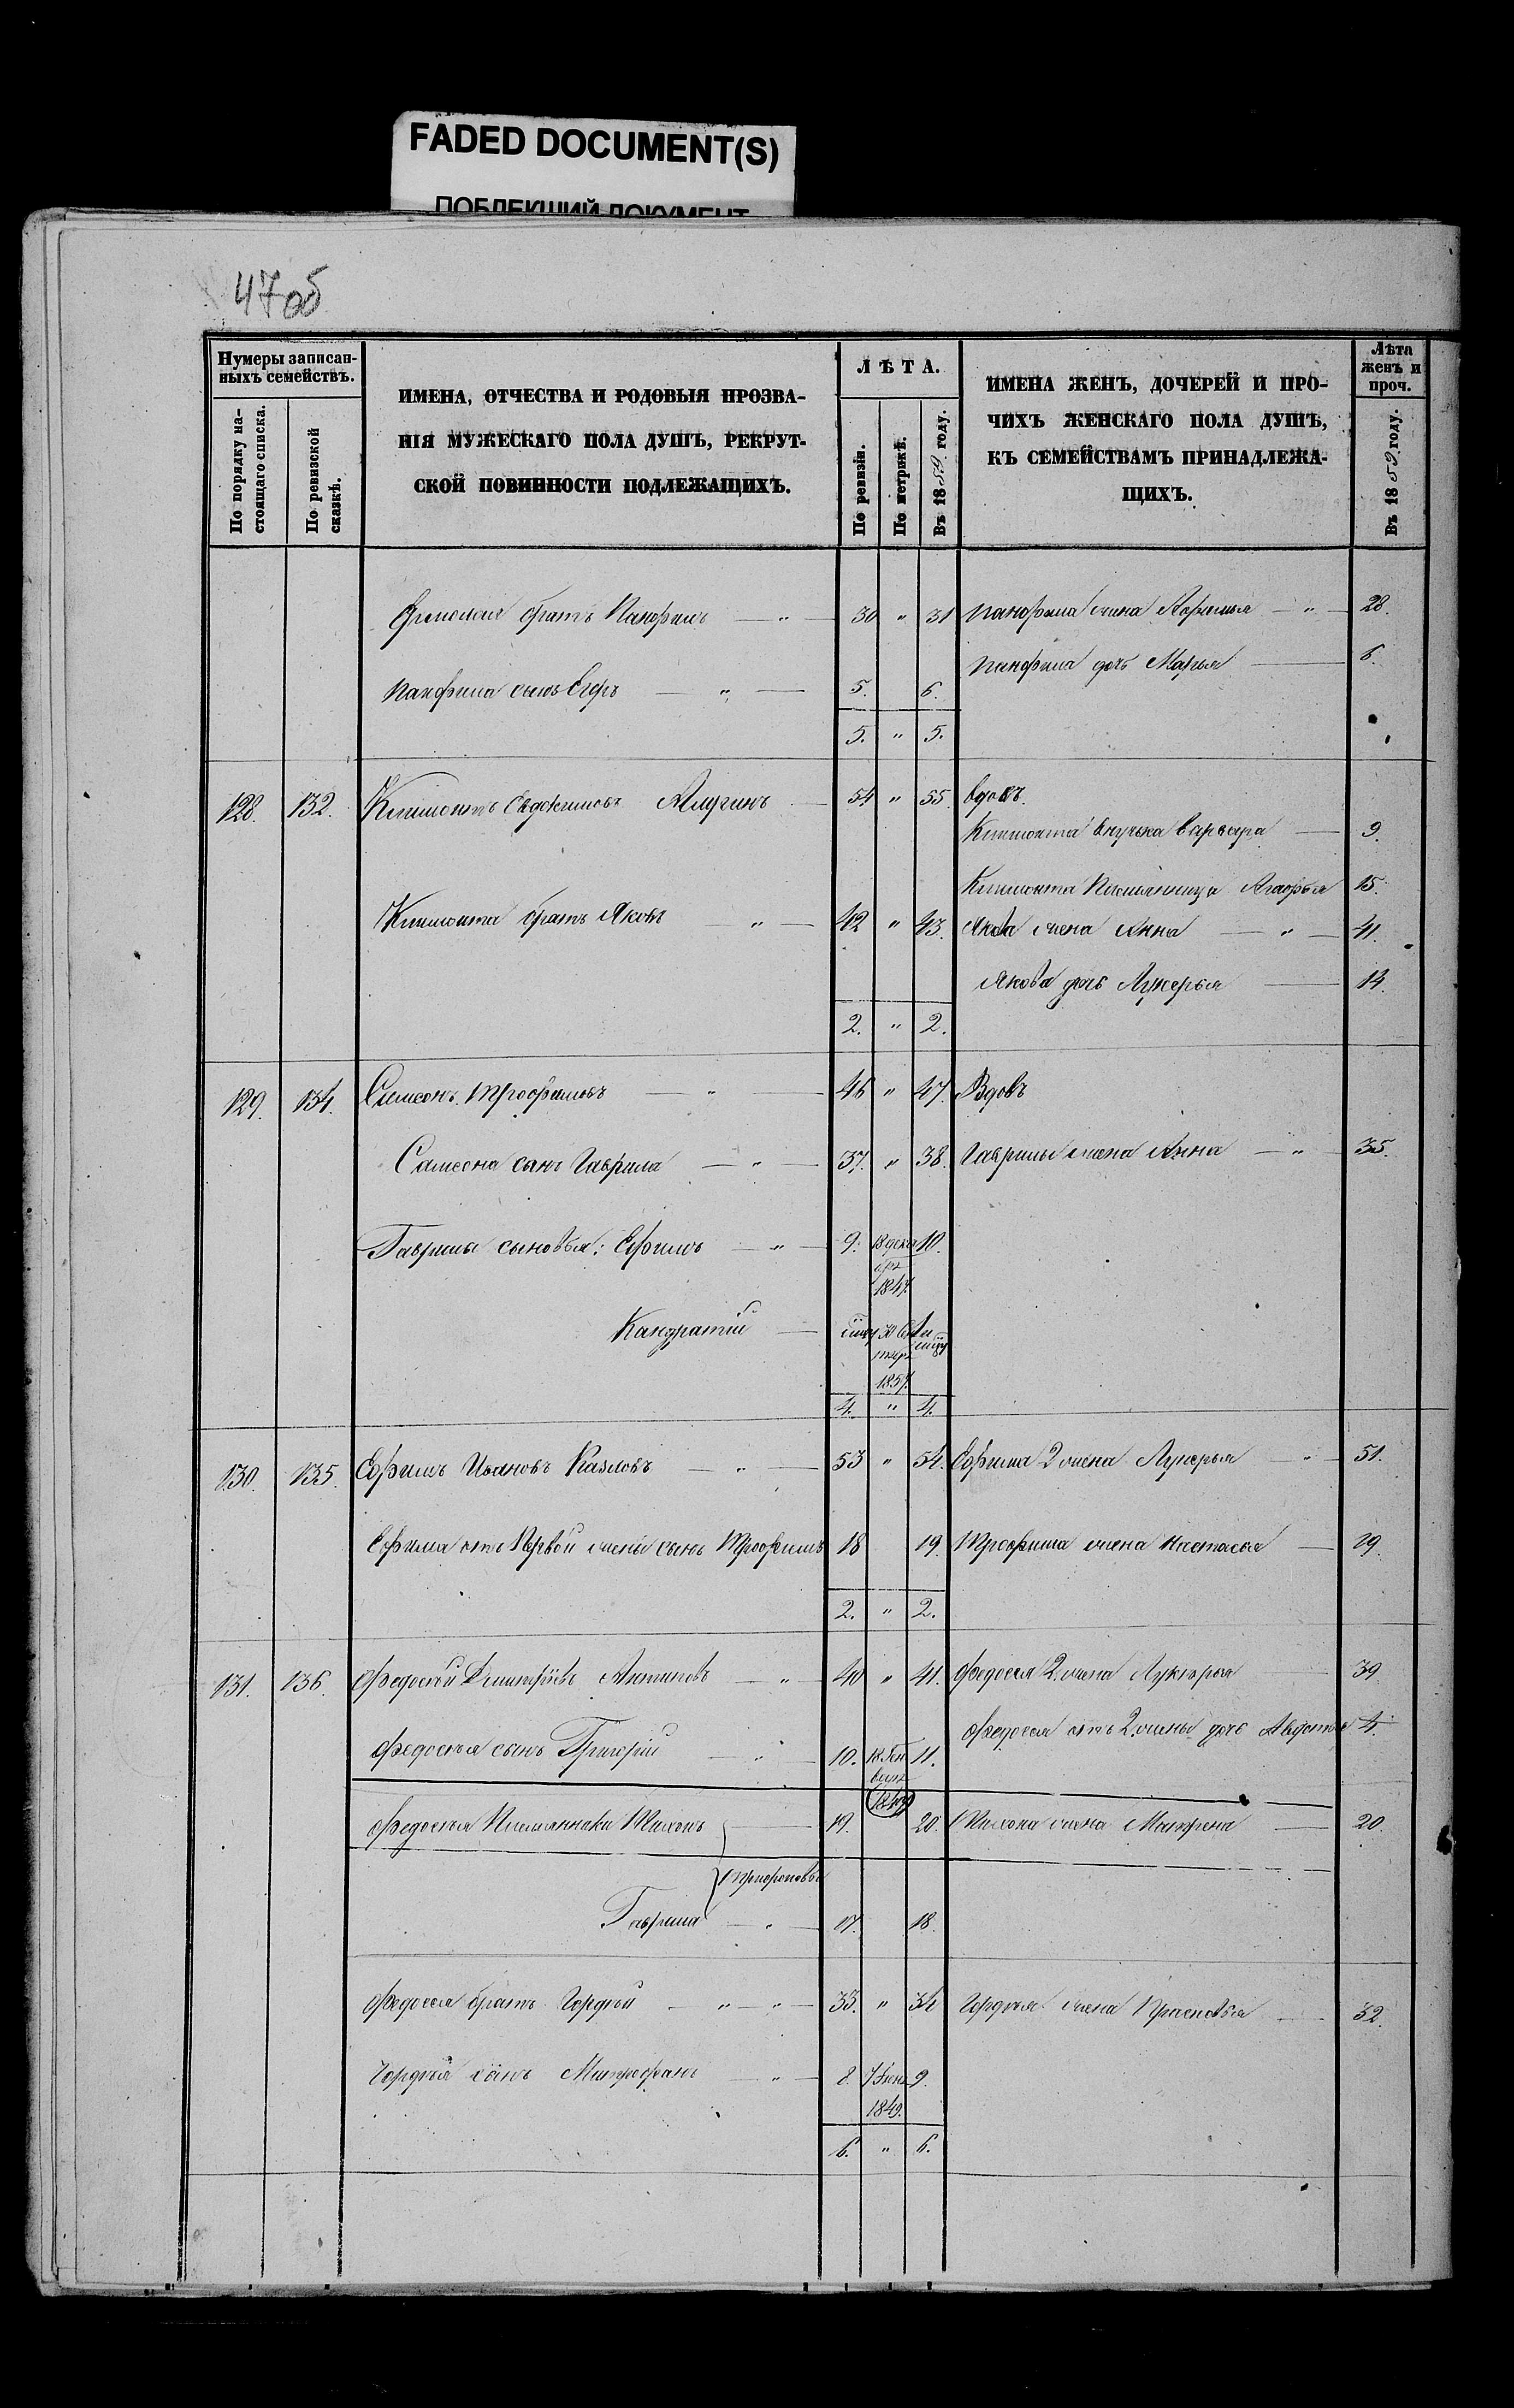 FADED DOCUMENT(S)
ПОБЛЕКШИЙ ДОКУМЕНТ
47об
Нумеры записан-
ныхъ семействъ.
По порядку на-
стоящаго списка.
По ревизской
сказкѣ.
ИМЕНА, ОТЧЕСТВА И РОДОВЫЯ ПРОЗВА-
НІЯ МУЖЕСКАГО ПОЛА ДУШЪ, РЕКРУТ-
СКОЙ ПОВИННОСТИ ПОДЛЕЖАЩИХЪ.
ЛѢТА.
По ревизіи.
По метрикѣ.
Въ 1859 году.
ИМЕНА ЖЕНЪ, ДОЧЕРЕЙ И ПРО-
ЧИХЪ ЖЕНСКАГО ПОЛА ДУШЪ,
КЪ СЕМЕЙСТВАМЪ ПРИНАДЛЕЖА-
ЩИХЪ.
Лѣта
женъ и
проч.
Въ 1859 году.
братъ Панфилъ — " — 30 " 31 Панфила жена — " — 28.
Панфила дочь Марья — 6.
Панфила сынъ Егоръ — " — 5. 6.
5. " 5.
128. 132. Климонтъ Евдокимовъ — 54 " 55. вдовъ.
Климонта внучька Варвара — 9.
Климонта Племянница Агафья 15.
Климонта братъ Яковъ " — 42 " 43. Якова жена Анна — " — 41.
Якова дочь Лукерья — 14.
2. " 2.
129. 134. Самсонъ Трофимовъ — " — 46 " 47. Вдовъ
Самсона сынъ Гаврила — " — 37. " 38. Гаврилы жена Анна — " — 35.
Гаврилы сыновья: Ефимъ — " — 9. 18 дека 10.
бря
1847.
Кандратій —
1857.
4. " 4.
130. 135. Ефимъ Ивановъ Казловъ — " — 53 " 54. Ефима 2 жена Лукерья " — 51.
Ефима отъ Первой жены сынъ Трофимъ 18 19. Трофима жена Настасья — 19.
2. " 2.
131. 136. Федосѣй Дмитріевъ Антиповъ — " — 40 " 41. Федосея 2 жена Лукерья 39
Федосея отъ 2 жены дочь Авдотья 4.
Федосѣя сынъ Григорій — " 10. 18 Ген 11.
варя
Федосѣя Племянники Тихонъ — 19. 20. Тихона жена Матрена — 20
Гаврила — " — 17. 18.
Федосея братъ Гордѣй — " — " — 33. " 34 Гордѣя жена Прасковья — 32.
Гордѣя сынъ Митрофанъ — " — 8. 7 Іюня 9.
1849.
6. " 6.